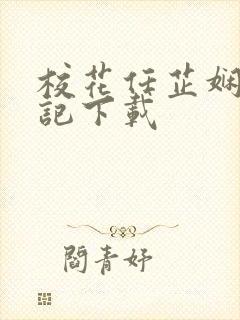 校花任芷娴
記下載
閻青妤